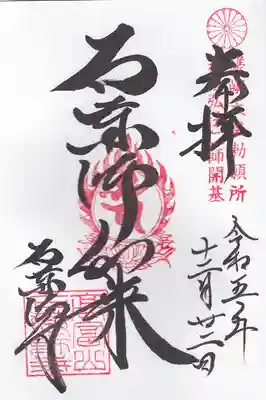 奉拝
勅願所
弘法大師開基
令和五年
十二月廿二日
石薬師如来
石薬師寺